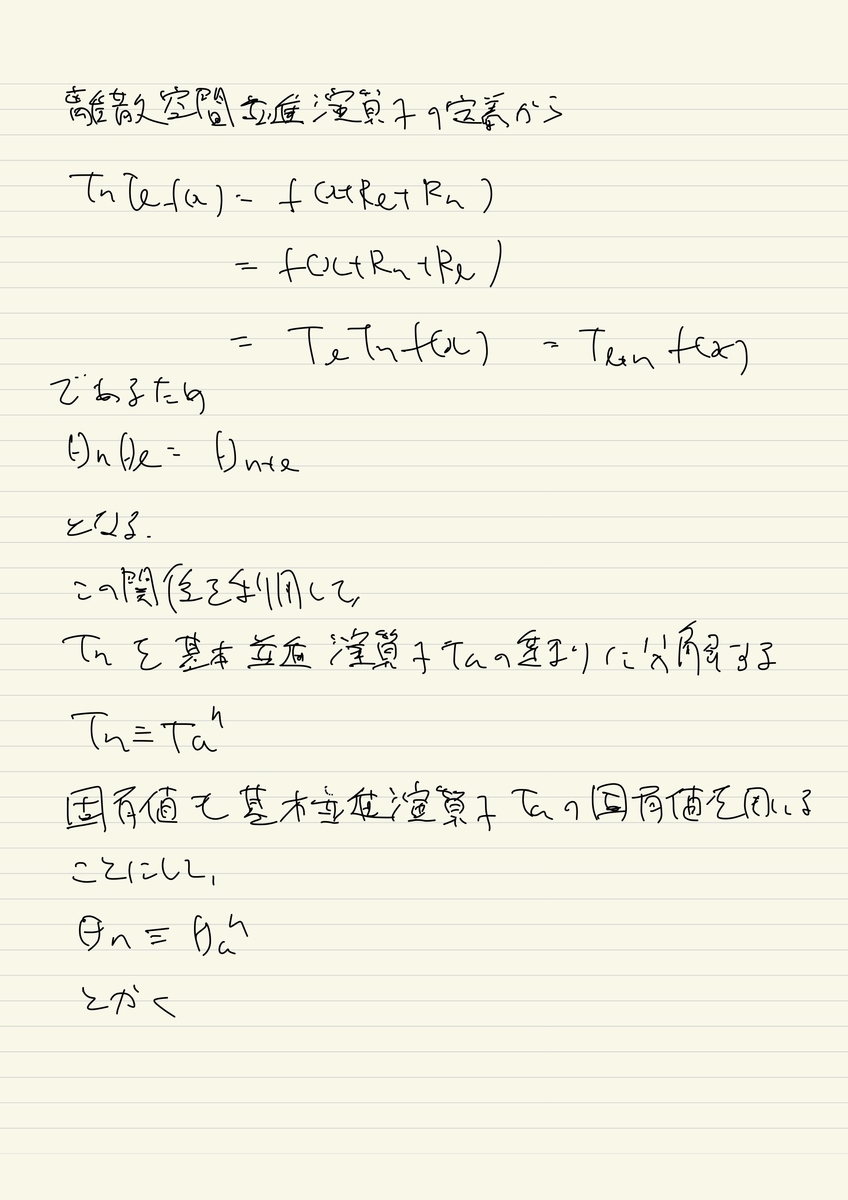 離散空間並進演算子の定義から
TnTl f(x) = f(x+Rl+Rn)
= f(x+Rn+Rl)
= TlTn f(x) = Tl+n f(x)
であるため
θnθl = θn+l
となる.
この関係を利用して,
Tnを基本並進演算子Taの重まりに分解する
Tn≡Ta^n
固有値も基本並進演算子Taの固有値を用いる
ことにして,
θn ≡ θa^n
とかく